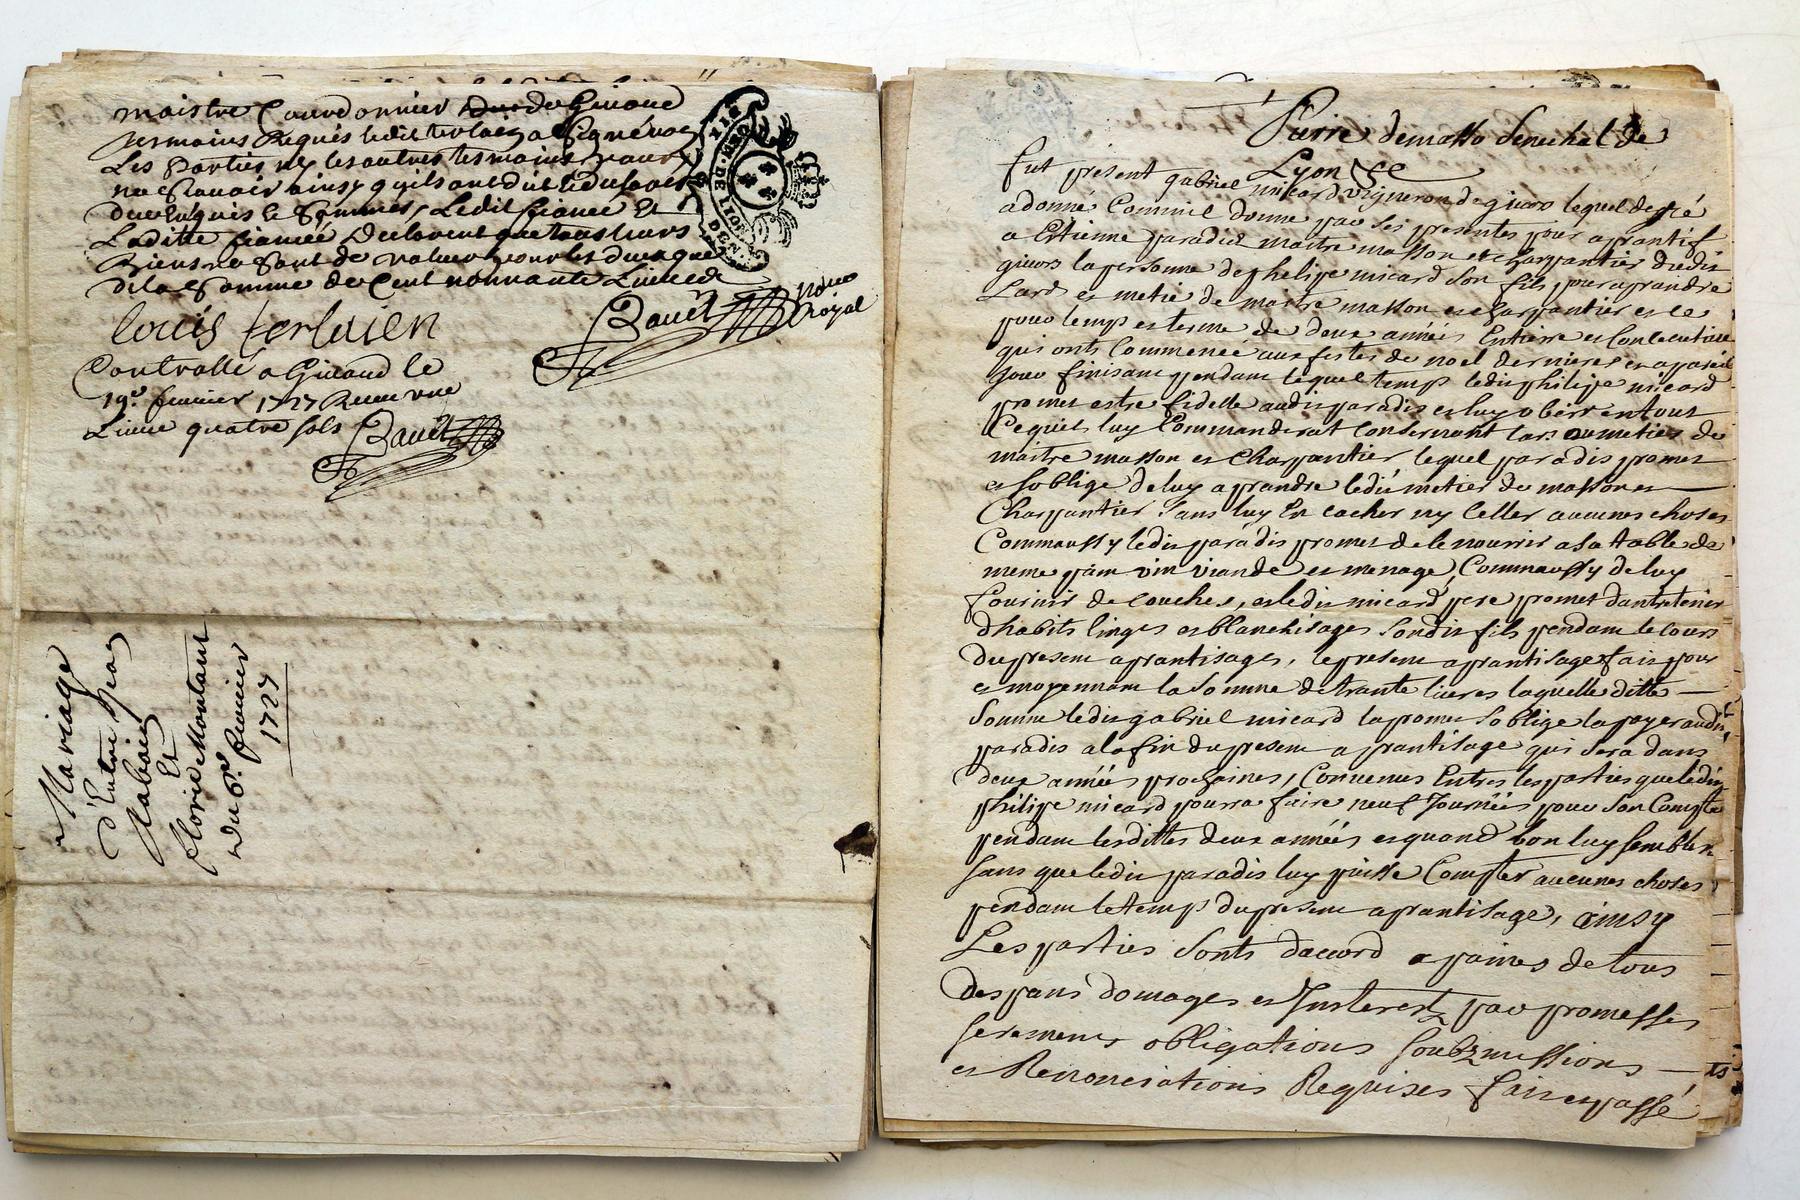 maistre Courdonnier de Givord
tesmoins Requis ledit terlaien a signé non
Les Parties ny les autres tesmoins pour
ne sçavoir ainsy quils ont dit de ce faire
duement Enquis et sommés, Ledit fiancé Et
Laditte fiancée Declarent que tous leurs
Biens ne sont de valeur pour les du
de la somme de Cent nonnante Livres
GEN DE LION
DEN
louis terlaien
Bauet no.re
Royal
Controllé a Givord le
19.e fevrier 1727 Receu une
Livre quatre sols Bauet
Mariage
d'Entre Jean
Et
florie Montant
du 6.e fevrier
1727
Pierre demasso Senechal de
Lyon &c
fut présent gabriel micard vigneron de givors lequel de gré
a donné Comme il donne par ses presentes pour aprantif
a Estienne paradis maitre masson et charpantier dudit
givors la personne de phelipe micard son fils pour aprandre
Lard et metié de maitre masson et charpantier et ce
pour temp et terme de deux années Entiere et Consecutive
qui onts Commencé aux festes de noel dernieres et a pareil
jour finisant pendam lequel temp ledit philipe micard
promet estre fidelle audit paradis et luy obeir en tout
Ce quil luy Commanderat Consernant lars ou metier de
maitre masson et Charpantier lequel paradis promet
et soblige de luy aprandre ledit metier de masson et
Charpantier sans luy En cacher ny Celler aucunes choses
Comm aussy ledit paradis promet de le nourrir a sa table de
meme pain vin viande et menage, Comm aussy de luy
fournir de couches, et ledit micard pere promet dantretenir
dhabits linges et blanchisages sondit fils pendam le cours
du presem aprantisages, le presem aprantisage fait pour
et moyennam la somme de trante livres laquelle ditte
somme ledit gabriel micard la promet soblige la payer audit
paradis a la fin du presem aprantisage qui sera dans
deux années prochaines, Convenus Entres les parties que ledit
philipe micard pourra faire neuf Journées pour son Compte
pendam lesdittes deux années et quand bon luy semblera
sans que ledit paradis luy puisse Compter aucunes choses
pendam le temp du presem aprantisage, ainsy
Les parties sonts daccord a paines de tous
despans domages et Insterest par promesses
seremens obligations soubzmissions
et Renonciations Requises fait et passé